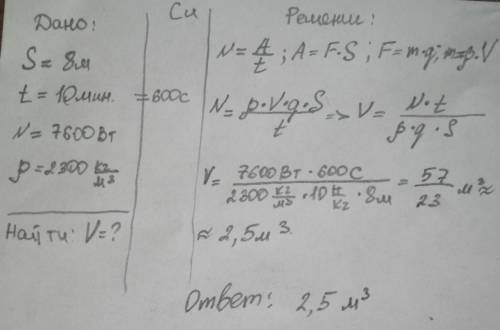 Дано:
S = 8м
t = 10мин.
N = 7600Вт
ρ = 2300 кг/м³
Найти: V = ?
Си
= 600С
Решение:
N = A/t ; A = F·S ; F = m·g; m = ρ·V
N = ρ·V·g·S/t => V = N·t/ρ·g·S
V = 7600Вт · 600С/2300 кг/м³ · 10 Н/кг · 8м = 57/23 м³ ≈
≈ 2,5м³.
Ответ: 2,5 м³